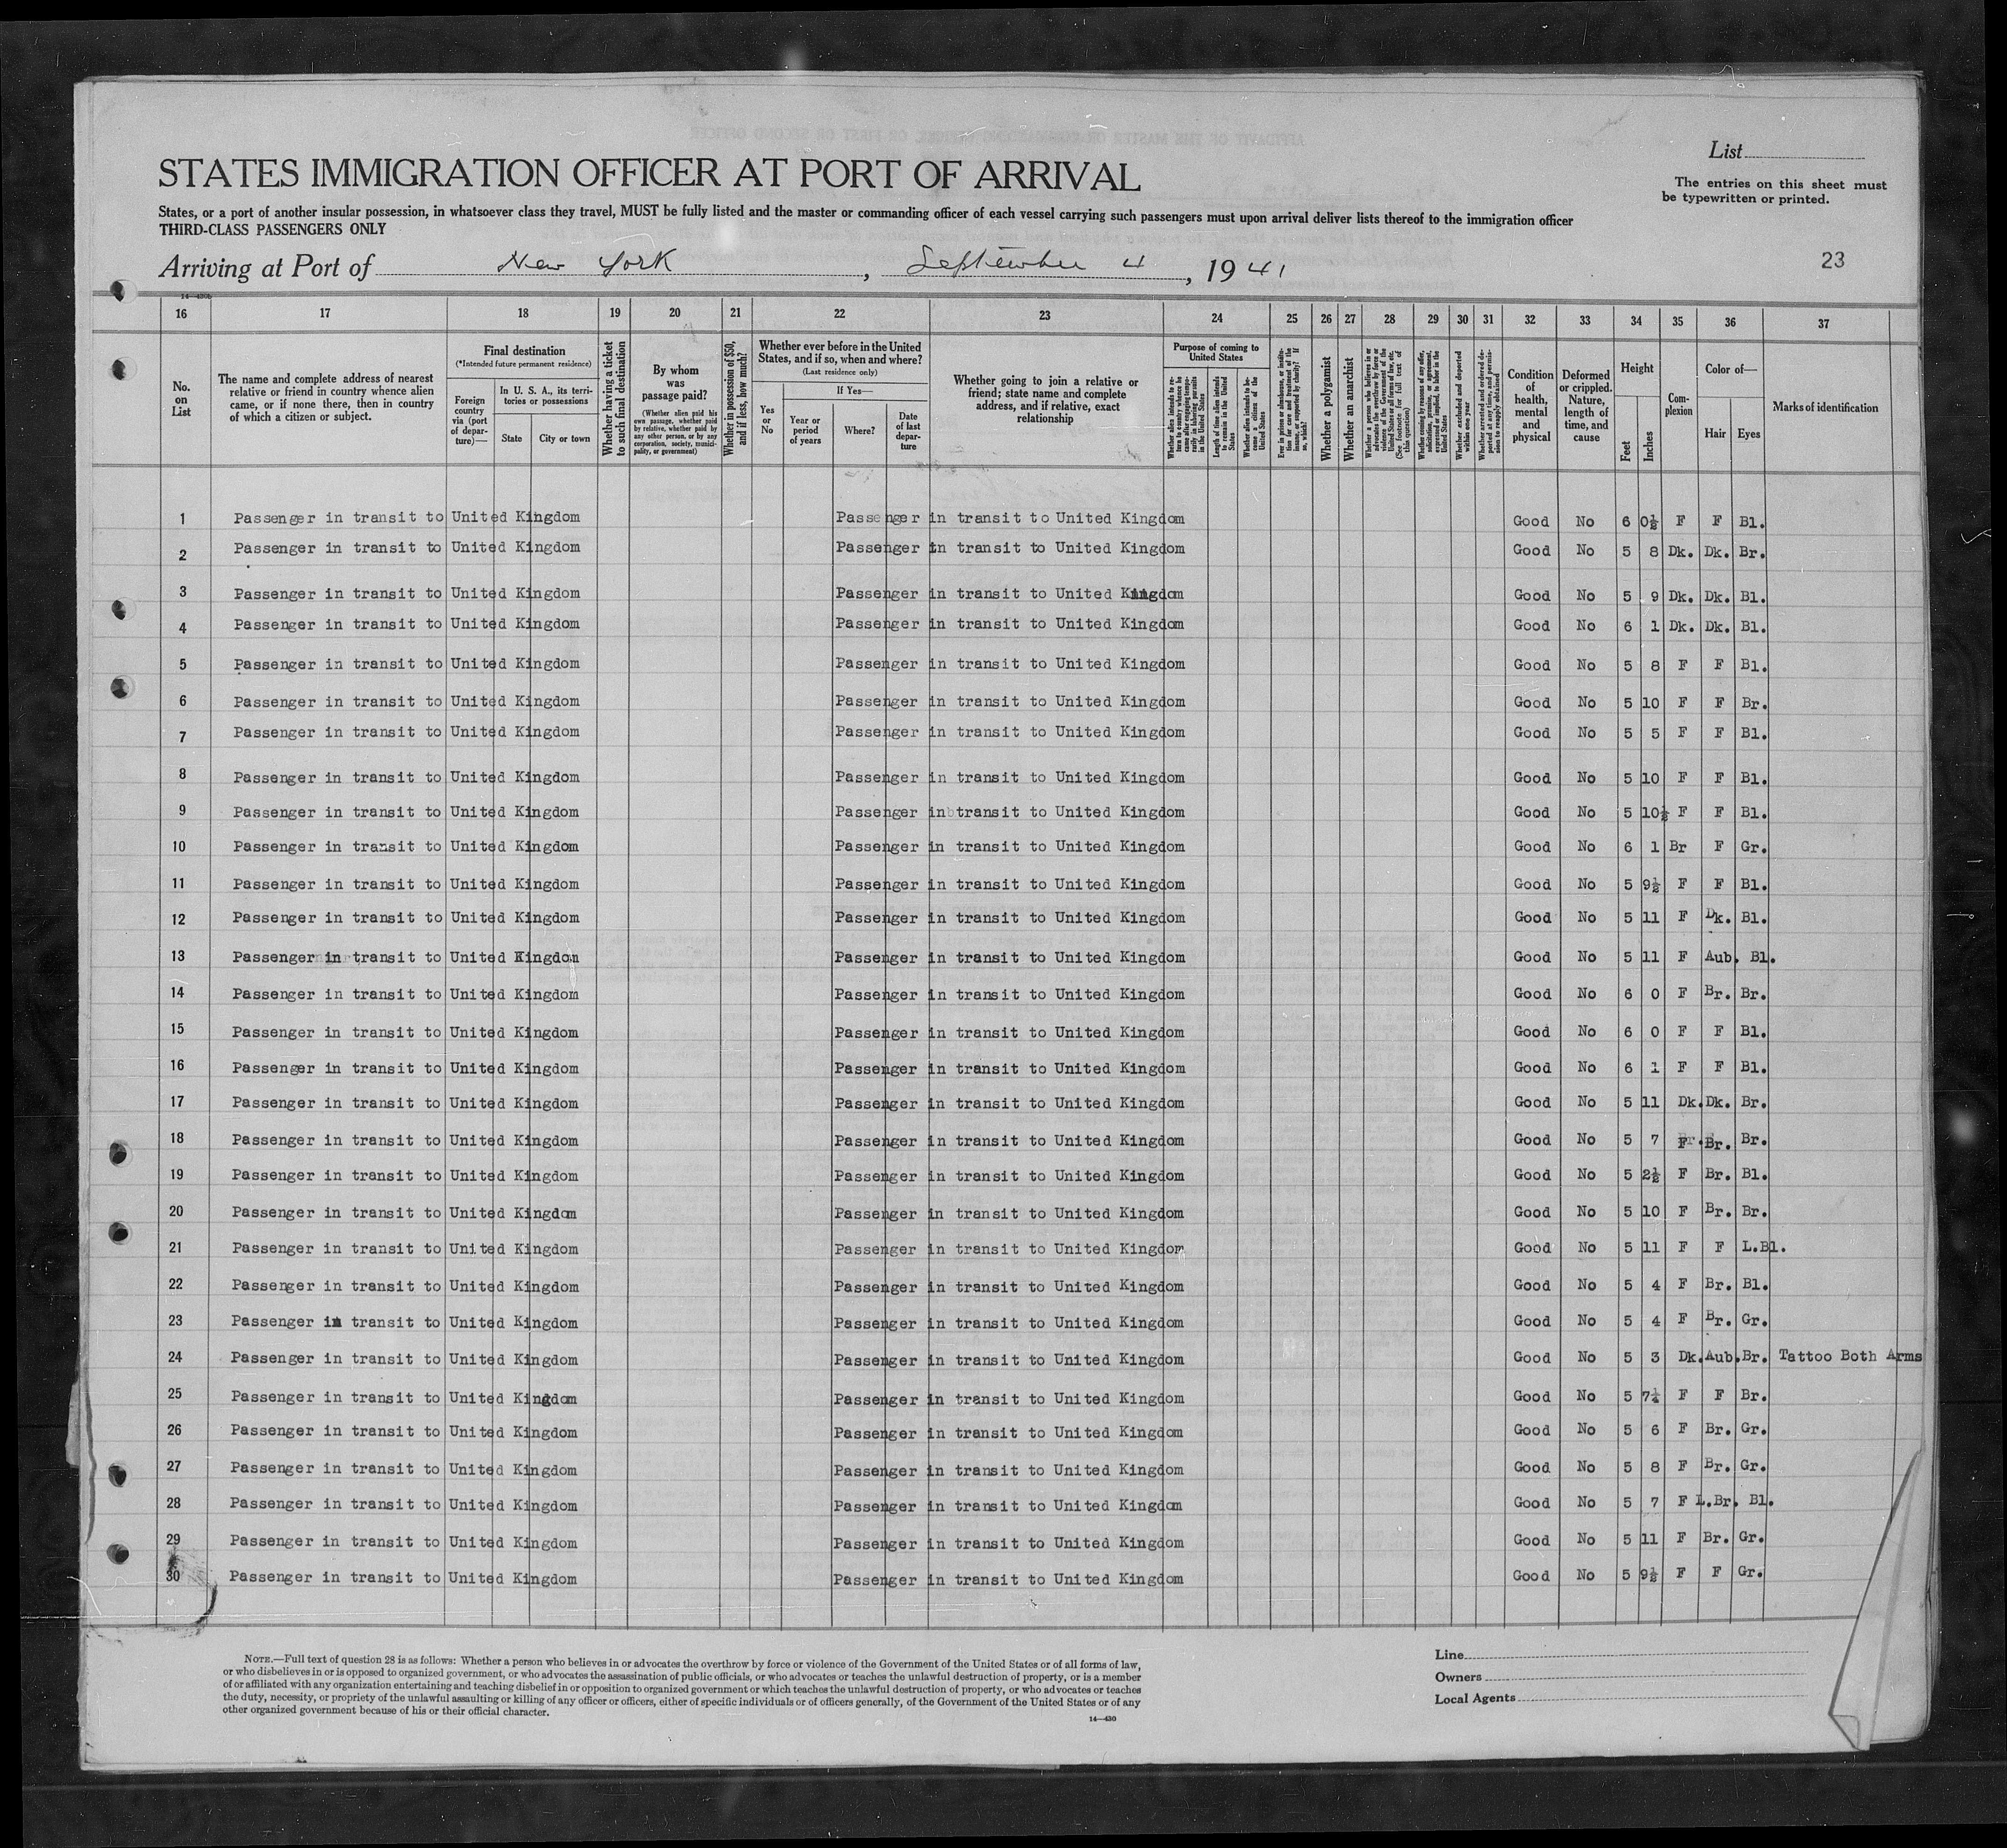 List
STATES IMMIGRATION OFFICER AT PORT OF ARRIVAL
The entries on this sheet must
be typewritten or printed.
States, or a port of another insular possession, in whatsoever class they travel, MUST be fully listed and the master or commanding officer of each vessel carrying such passengers must upon arrival deliver lists thereof to the immigration officer
THIRD-CLASS PASSENGERS ONLY
Arriving at Port of New York, September 4, 1941
23
16 17 18 19 20 21 22 23 24 25 26 27 28 29 30 31 32 33 34 35 36 37
No. on List
The name and complete address of nearest relative or friend in country whence alien came, or if none there, then in country of which a citizen or subject.
Final destination
(*Intended future permanent residence)
Foreign country via (port of departure)—
In U. S. A., its territories or possessions
State
City or town
Whether having a ticket to such final destination
By whom was passage paid?
(Whether alien paid his own passage, whether paid by relative, whether paid by any other person, or by any corporation, society, municipality, or government)
Whether in possession of $50, and if less, how much?
Whether ever before in the United States, and if so, when and where?
(Last residence only)
Yes or No
If Yes—
Year or period of years
Where?
Date of last departure
Whether going to join a relative or friend; state name and complete address, and if relative, exact relationship
Purpose of coming to United States
Whether alien intends to return to country whence he came after engaging temporarily in laboring pursuits in the United States
Length of time alien intends to remain in the United States
Whether alien intends to become a citizen of the United States
Whether a polygamist
Whether an anarchist
Condition of health, mental and physical
Deformed or crippled. Nature, length of time, and cause
Height
Feet
Inches
Complexion
Color of—
Hair
Eyes
Marks of identification
1 Passenger in transit to United Kingdom Passenger in transit to United Kingdom Good No 6 0½ F F Bl.
2 Passenger in transit to United Kingdom Passenger in transit to United Kingdom Good No 5 8 Dk. Dk. Br.
3 Passenger in transit to United Kingdom Passenger in transit to United Kingdom Good No 5 9 Dk. Dk. Bl.
4 Passenger in transit to United Kingdom Passenger in transit to United Kingdom Good No 6 1 Dk. Dk. Bl.
5 Passenger in transit to United Kingdom Passenger in transit to United Kingdom Good No 5 8 F F Bl.
6 Passenger in transit to United Kingdom Passenger in transit to United Kingdom Good No 5 10 F F Br.
7 Passenger in transit to United Kingdom Passenger in transit to United Kingdom Good No 5 5 F F Bl.
8 Passenger in transit to United Kingdom Passenger in transit to United Kingdom Good No 5 10 F F Bl.
9 Passenger in transit to United Kingdom Passenger in transit to United Kingdom Good No 5 10½ F F Bl.
10 Passenger in transit to United Kingdom Passenger in transit to United Kingdom Good No 6 1 Br F Gr.
11 Passenger in transit to United Kingdom Passenger in transit to United Kingdom Good No 5 9½ F F Bl.
12 Passenger in transit to United Kingdom Passenger in transit to United Kingdom Good No 5 11 F Dk. Bl.
13 Passenger in transit to United Kingdom Passenger in transit to United Kingdom Good No 5 11 F Aub. Bl.
14 Passenger in transit to United Kingdom Passenger in transit to United Kingdom Good No 6 0 F Br. Br.
15 Passenger in transit to United Kingdom Passenger in transit to United Kingdom Good No 6 0 F F Bl.
16 Passenger in transit to United Kingdom Passenger in transit to United Kingdom Good No 6 1 F F Bl.
17 Passenger in transit to United Kingdom Passenger in transit to United Kingdom Good No 5 11 Dk. Dk. Br.
18 Passenger in transit to United Kingdom Passenger in transit to United Kingdom Good No 5 7 F Br. Br.
19 Passenger in transit to United Kingdom Passenger in transit to United Kingdom Good No 5 2½ F Br. Bl.
20 Passenger in transit to United Kingdom Passenger in transit to United Kingdom Good No 5 10 F Br. Br.
21 Passenger in transit to United Kingdom Passenger in transit to United Kingdom Good No 5 11 F F L.Bl.
22 Passenger in transit to United Kingdom Passenger in transit to United Kingdom Good No 5 4 F Br. Bl.
23 Passenger in transit to United Kingdom Passenger in transit to United Kingdom Good No 5 4 F Br. Gr.
24 Passenger in transit to United Kingdom Passenger in transit to United Kingdom Good No 5 3 Dk. Aub. Br. Tattoo Both Arms
25 Passenger in transit to United Kingdom Passenger in transit to United Kingdom Good No 5 7¼ F F Br.
26 Passenger in transit to United Kingdom Passenger in transit to United Kingdom Good No 5 6 F Br. Gr.
27 Passenger in transit to United Kingdom Passenger in transit to United Kingdom Good No 5 8 F Br. Gr.
28 Passenger in transit to United Kingdom Passenger in transit to United Kingdom Good No 5 7 F L.Br. Bl.
29 Passenger in transit to United Kingdom Passenger in transit to United Kingdom Good No 5 11 F Br. Gr.
30 Passenger in transit to United Kingdom Passenger in transit to United Kingdom Good No 5 9½ F F Gr.
NOTE.—Full text of question 28 is as follows: Whether a person who believes in or advocates the overthrow by force or violence of the Government of the United States or of all forms of law,
or who disbelieves in or is opposed to organized government, or who advocates the assassination of public officials, or who advocates or teaches the unlawful destruction of property, or is a member
of or affiliated with any organization entertaining and teaching disbelief in or opposition to organized government or which teaches the unlawful destruction of property, or who advocates or teaches
the duty, necessity, or propriety of the unlawful assaulting or killing of any officer or officers, either of specific individuals or of officers generally, of the Government of the United States or of any
other organized government because of his or their official character.
14—430
Line
Owners
Local Agents